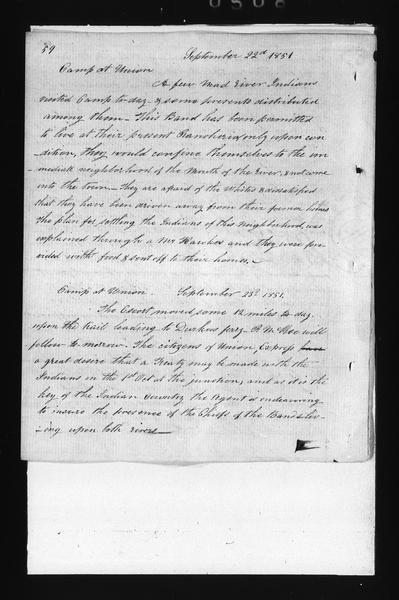 0508
59
September 22d 1851
Camp at Union
A few Mad River Indians
visited Camp to-day & some presents distributed
among them - This Band has been permitted
to live at their present Rancheria only upon con
-dition, they would confine themselves to the im
-mediate neighborhood of the Mouth of the River, & not come
into the town - They are afraid of the Whites & dissatisfied
that they have been driven away from their former homes
The plan for settling the Indians of this Neighborhood, was
explained through a Mr and they were pro
vided with food & sent off to their homes. -
Camp at Union September 23d 1851.
The Escort moved some 12 miles to-day.
upon the trail leading to Durkees ferry R McKee will
follow to-morrow. The citizens of Union, Express have
a great desire that a Treaty may be made with the
Indians in the 1st Oct at the junction, and as it is the
key of the Indian Country the Agent is endeavoring
to insure the presence of the Chiefs of the Bands liv-
-ing upon both rivers -